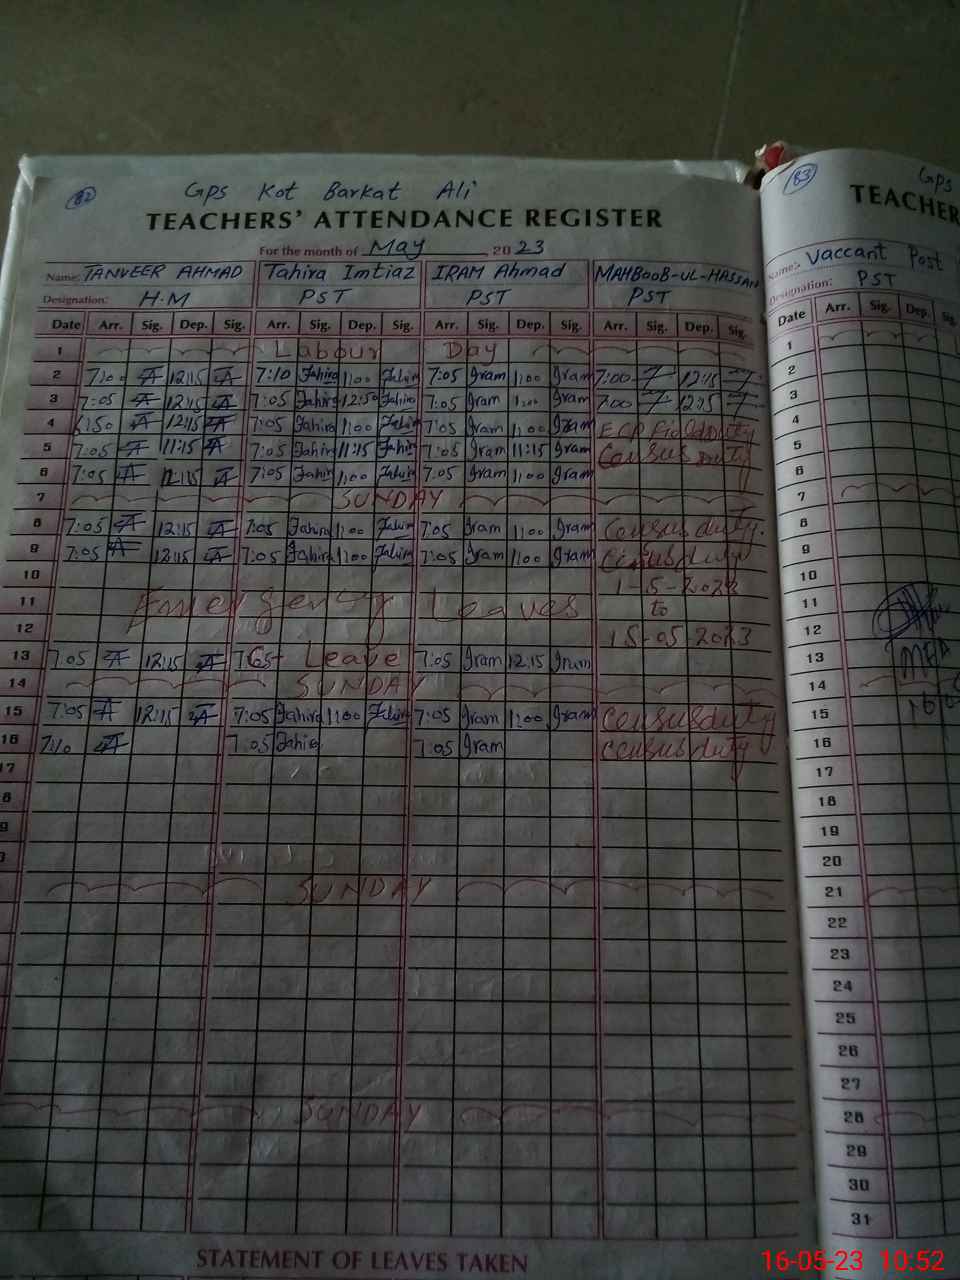 82
Gps Kot Barkat Ali
TEACHERS' ATTENDANCE REGISTER
For the month of May 2023
Name: TANVEER AHMAD Tahira Imtiaz IRAM Ahmad MAHBOOB-UL-HASSAN
Designation: H.M PST PST PST
Date Arr. Sig. Dep. Sig. Arr. Sig. Dep. Sig. Arr. Sig. Dep. Sig. Arr. Sig. Dep. Sig.
1 Labour Day
2 7:00 12:15 7:10 Tahira 1:00 Tahira 7:05 Iram 1:00 Iram 7:00 12:15
3 7:05 12:15 7:05 Tahira 12:50 Tahira 7:05 Iram 1:00 Iram 7:00 12:15
4 12:15 7:05 Tahira 1:00 Tahira 7:05 Iram 1:00 Iram ECP Field duty
5 7:05 11:15 7:05 Tahira 11:15 Tahira 7:05 Iram 11:15 Iram Census duty
6 7:05 12:15 7:05 Tahira 1:00 Tahira 7:05 Iram 1:00 Iram
7 SUNDAY
8 7:05 12:15 7:05 Tahira 1:00 Tahira 7:05 Iram 1:00 Iram Census duty.
9 7:05 12:15 7:05 Tahira 1:00 Tahira 7:05 Iram 1:00 Iram Census duty
10 1-5-2023
11 Emergency Leaves to
12 15-05-2023
13 7:05 12:15 Leave 7:05 Iram 12:15 Iram
14 SUNDAY
15 7:05 12:15 7:05 Tahira 1:00 Tahira 7:05 Iram 1:00 Iram Census duty
16 7:10 7:05 Tahira 7:05 Iram Census duty
17
8
9
SUNDAY
SUNDAY
STATEMENT OF LEAVES TAKEN
83
Gps
TEACHER
Name: Vaccant Post
Designation: PST
Date Arr. Sig. Dep. Sig
1
2
3
4
5
6
7
8
9
10
11
12
13
14
15
16
17
18
19
20
21
22
23
24
25
26
27
28
29
30
31
16-05-23 10:52